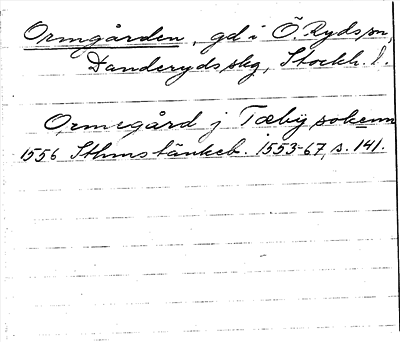 Ormgården, gd i Ö. Ryds sn,
Danderyds skg, Stockh. l.
Ormegård j Tæby sokenn
1556 Sthms tänkeb. 1553-67, s. 141.